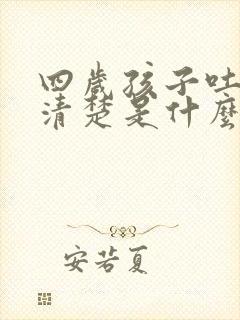 四歲孩子吐
清楚是什麼
安若夏